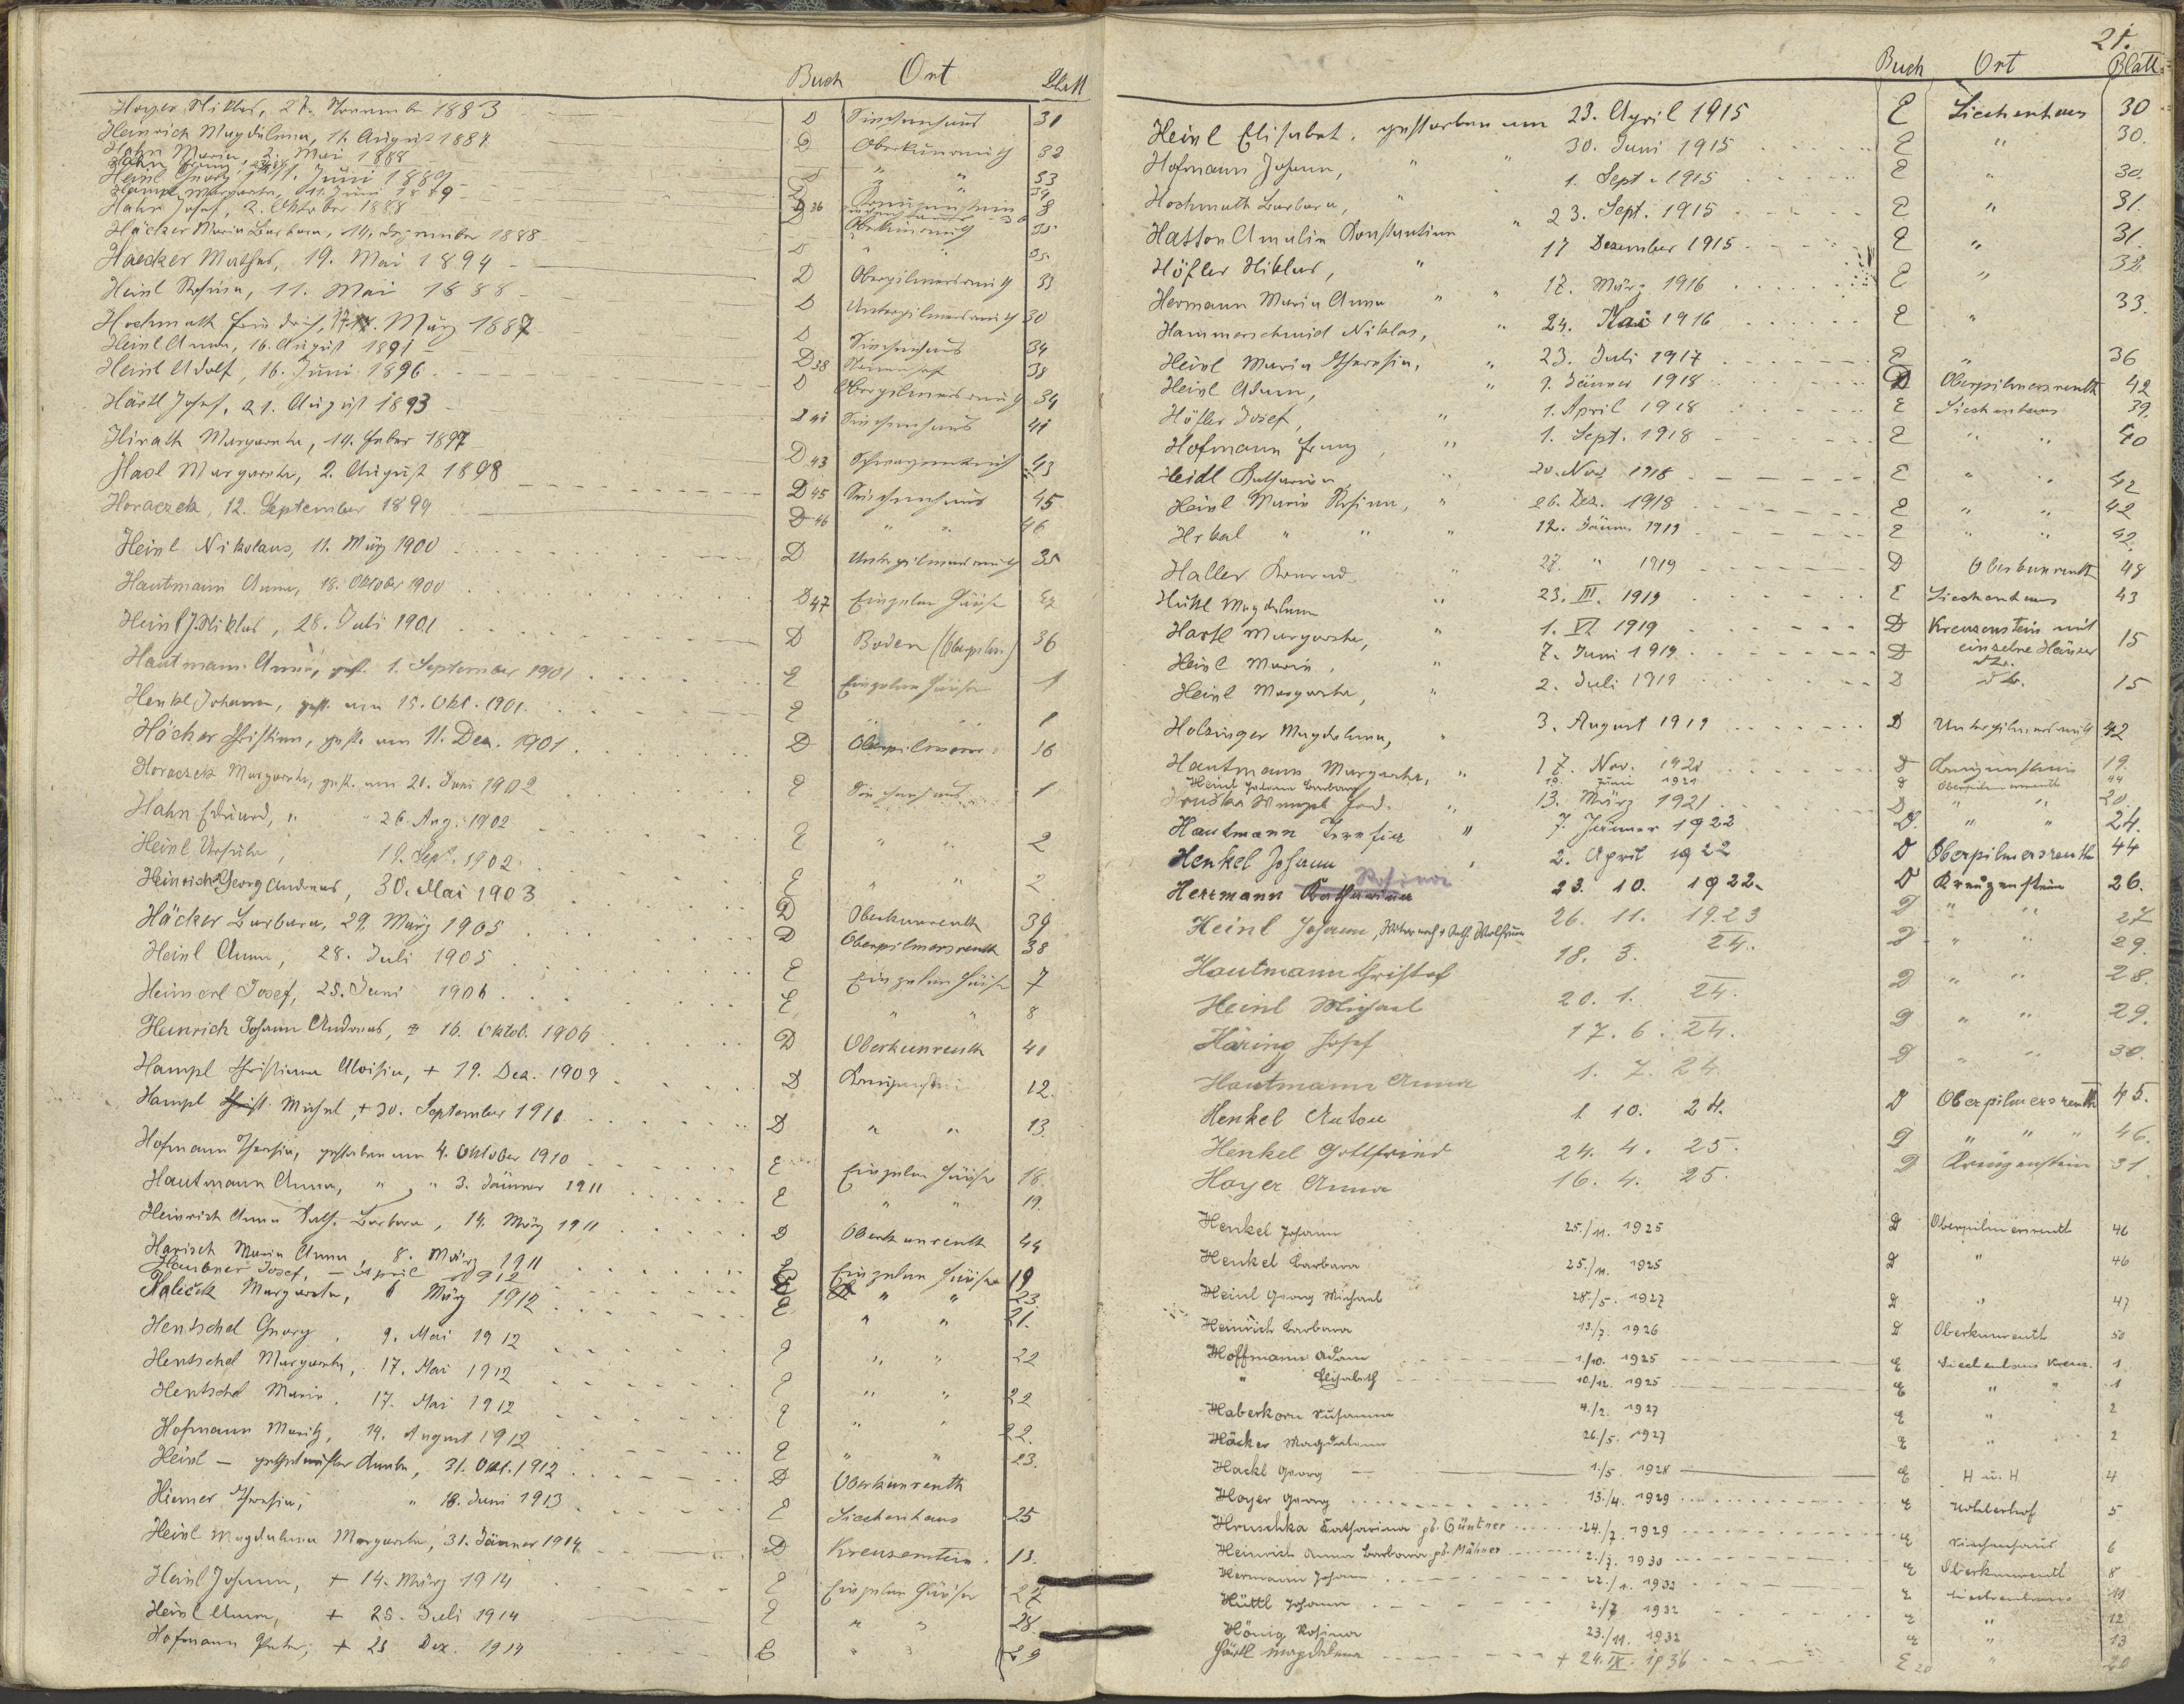 Buch Ort Blatt
Hoyer Niklas, 27. November 1883 D Siechenhaus 31
Heinrich Magdalena, 11. August 1887 D Oberkunreuth 32
Hahn Maria, 2. Mai 1888 " "
Heinl Georg 1. Juni 1889 D " " 33
Hampl Margareta, 11. Juni 1889 D Kreuzenstein 8
Hahn Josef, 2. Oktober 1888 D
Häcker Maria Barbara, 14. Dezember 1888 Oberkunreuth 35
Haecker Mathes, 19. Mai 1894 D " 35.
Heinl Rosina, 11. Mai 1888 D Oberpilmersreuth 33
Hochmuth Friedrich, 17. März 1887 D Unterpilmersreuth 30
Heinl Anna, 16. August 1891 D Siechenhaus 34
Heinl Adolf, 16. Juni 1896 D 38 38
Härtl Josef, 21. August 1893 D Oberpilmersreuth 34
Hirath Margareta, 14. Feber 1897 D 41 Siechenhaus 41
Hasl Margareta, 2. August 1898 D 43 43
Horaczek, 12. September 1899 D 45 Siechenhaus 45
Heinl Nikolaus, 11. März 1900 D 46 " " 46
Hautmann Anna, 18. Oktober 1900 D Unterpilmersreuth 35
Heinl J. Niklas, 28. Juli 1901 D 47 Einzelne Häuser 47
Hautmann Anna, gest. 1. September 1901 D Boden (Oberpilm) 36
Henkl Johann, gest. am 15. Okt. 1901 E Einzelne Häuser 1
Häcker Christian, gest. am 11. Dez. 1901 E " " 1
Horaczek Margareta, gest. am 20. Juni 1902 D Oberpilmers 36
Hahn Eduard, " " 26. Aug. 1902 E Siechenhaus 1
Heinl Ursula, 19. Sept. 1902 E " " 2
Heinrich Georg Andreas, 30. Mai 1903 E " " 2
Häcker Barbara, 29. März 1905 D Oberkunreuth 39
Heinl Anna, 28. Juli 1905 D Oberpilmersreuth 38
Heimerl Josef, 25. Juni 1906 E Einzelne Häuser 7
Heinrich Johann Andreas, 16. Oktob. 1906 E " " 8
Hampl Christiana Aloisia, + 19. Dez. 1909 D Oberkunreuth 41
Hampl Michael, + 30. September 1910 D Kreuzenstein 12.
D " " 13.
Hofmann Theresia, gestorben am 4. Oktober 1910 E Einzelne Häuser 18.
Hautmann Anna, " " 3. Jänner 1911 E " " 19.
Heinrich Anna Kath. Barbara, 14. März 1911 D Oberkunreuth 44
Harisch Maria Anna, 8. März 1911 E Einzelne Häuser 19
Haubner Josef, – April 1912 E " " 23.
Haliček Margareta, 6 März 1912 E " " 21.
Hentschel Georg, 9. Mai 1912 E " " 22
Hentschel Margareta, 17. Mai 1912 E " " 22
Hentschel Maria, 17. Mai 1912 E " " 22.
Hofmann Moritz, 14. August 1912 E " " 23.
Heinl – Knabe, 31. Okt. 1912 D Oberkunreuth
Hiemer Theresia, " 18. Juni 1913 E Siechenhaus 25
Heinl Magdalena Margareta, 31. Jänner 1914 D Kreuzenstein 13.
Heinl Johann, + 14. März 1914 E Einzelne Häuser 27
Heinl Anna, + 25. Juli 1914 E " " 28.
Hofmann Peter, + 25 Dez. 1914 E " " 29
21.
Buch Ort Blatt
Heinl Elisabet, gestorben am 23. April 1915 E Siechenhaus 30
Hofmann Johann, " " 30. Juni 1915 E " 30.
Hochmuth Barbara, " 1. Sept. 1915 E " 30.
Hatton Amalia Konstantina " 23. Sept. 1915 E " 31.
Höfler Niklas, " 17 Dezember 1915 E " 31.
Hermann Maria Anna " " 17. März 1916 E " 32.
Hammerschmid Niklas, " 24. Mai 1916 E " 33.
Heinl Maria Theresia, " 23. Juli 1917 E " 36
Heinl Adam, " 9. Jänner 1918 D Oberpilmersreuth 42
Höfler Josef, " 1. April 1918 E Siechenhaus 39.
Hofmann Franz, " 1. Sept. 1918 E " " 40
Heidl Katharina " 20. Nov. 1918 E " " 42
Heinl Maria Rosina, " 26. Dez. 1918 E " " 42
Hrkal " " " 12. Jänner 1919 E " " 42.
Haller Konrad " 27. " 1919 D Oberkunreuth 48
Hüttl Magdalena " 23. III. 1919 E Siechenhaus 43
Hartl Margareta, " 1. VI 1919 D Kreuzenstein mit 15
Heinl Maria, " 7. Juni 1919 D einzelne Häuser
Heinl Margareta, " 2. Juli 1919 D dto. 15
Holzinger Magdalena, " 3. August 1919 D Unterpilmersreuth 42
Hautmann Margareta, " 17. Nov. 1920 D Kreuzenstein 19.
Heinl Johann Barbara 19. Juni 1921 D Oberpilmersreuth 44
Hruška Wenzel Ferd. " 13. März 1921 D " " 20.
Hautmann Theresia " 7. Jänner 1922 D. " " 24.
Henkel Johann " 2. April 1922 D Oberpilmersreuth 44
Herrmann Katharina Rosina 23. 10. 1922. D Kreuzenstein 26.
Heinl Johann, 26. 11. 1923 D " " 27
Hautmann Christof 18. 3. 24. D " " 29.
Heinl Michael 20. 1. 24. D " " 28.
Häring Josef 17. 6. 24. D " " 29.
Hautmann Anna 1. 7. 24 D " " 30.
Henkel Anton 1. 10. 24. D Oberpilmersreuth 45.
Henkel Gottfried 24. 4. 25. D " " " 46.
Hoyer Anna 16. 4. 25. D Kreuzenstein 31.
Henkel Johann 25./11. 1925 D Oberpilmersreuth 46
Henkel Barbara 25./11. 1925 D " 46
Heinl Georg Michael 28./5. 1927 D " 47
Heinrich Barbara 13./7. 1926 D Oberkunreuth 50
Hoffmann Adam 1./10. 1925 E Siechenhaus Kreuz. 1
" Elisabeth 10./12. 1925 E " " 1
Haberkorn Susanna 4./2. 1927 E " 2
Häcker Magdalena 26./5. 1927 E " 2
Hackl Georg 1./5. 1928 E H u. H 4
Hoyer Georg 13./4. 1929 E 5
Hruschka Katharina gb. Güntner 24./7. 1929 E Siechenhaus 6
Heinrich Anna Barbara gb. Mähner 2./7. 1930 E Oberkunreuth 8
Hermann Johann 22./1. 1932 E Siechenhaus 11
Hüttl Johann 2./7. 1932 E " 12
Hönig Rosina 23./11. 1932 E " 13
Härtl Magdalena + 24. IX. 1936 E 20 " 20